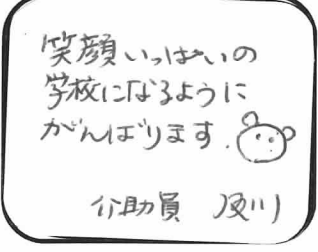 笑顔いっぱいの
学校になるように
がんばります.
介助員 及川